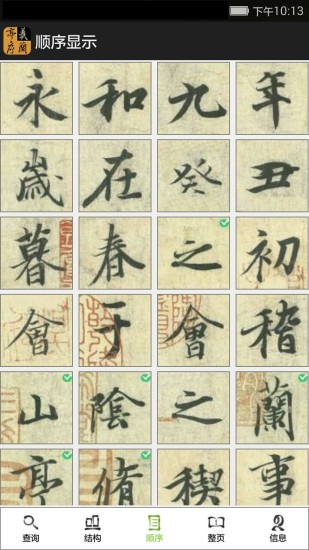 下午10:13
羲蘭
亭序
顺序显示
永和九年
歲在癸丑
暮春之初
會于會稽
山陰之蘭
亭脩稧事
查询 结构 顺序 整页 信息